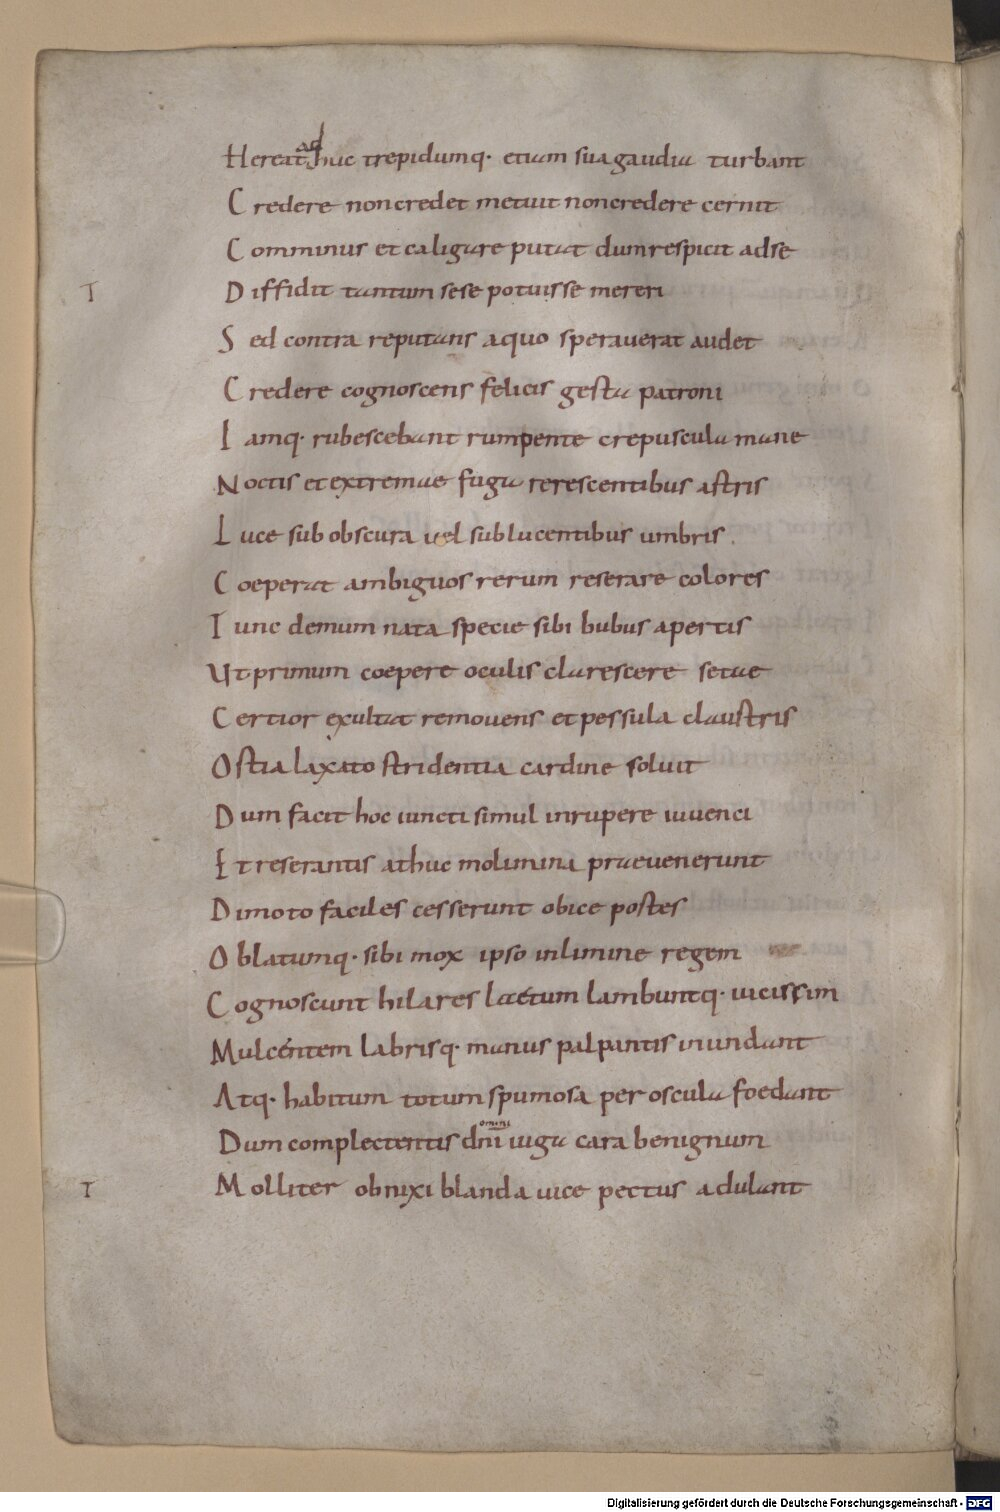 Hereat ad huc trepidumq· etiam sua gaudia turbant
Credere non credet metuit non credere cernit
Comminus et caligare putat dum respicit adse
T Diffidit tantum sese potuisse mereri
Sed contra reputans a quo speraverat audet
Credere cognoscens felicis gesta patroni
Iamq· rubescebant rumpente crepuscula mane
Noctis et extremae fuga rerescentibus astris
Luce sub obscura vel sublucentibus umbris.
Coeperat ambiguos rerum reserare colores
Tunc demum nata specie sibi bubus apertis
Ut primum coepere oculis clarescere setae
Certior exultat removens et pessula claustris
Ostia laxato stridentia cardine soluit
Dum facit hoc iuncti simul inrupere iuvenci
Et reserantis athuc molimina praevenerunt
Dimoto faciles cesserunt obice postes
Oblatumq· sibi mox ipso in limine regem
Cognoscunt hilares laetum lambuntq· uicissim
Mulcentem labrisq· manus palpantis inundant
Atq· habitum totum spumosa per oscula foedant
omini
Dum complectentis dni iuga cara benignum
T Molliter obnixi blanda uice pectus adulant
Digitalisierung gefördert durch die Deutsche Forschungsgemeinschaft - DFG